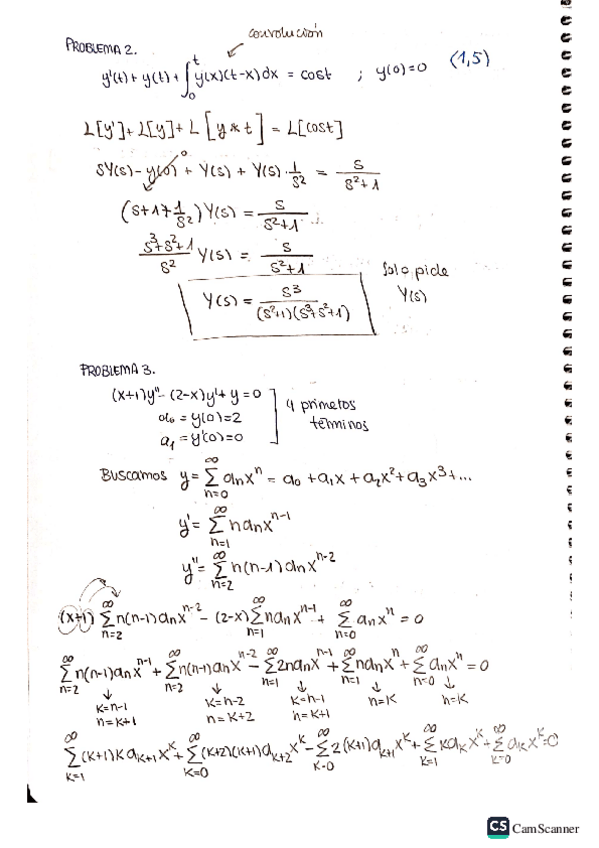 convolución
PROBLEMA 2.
y'(t) + y(t) + ∫₀ᵗ y(x)(t-x)dx = cost ; y(0)=0 (1,5)
L[y'] + L[y] + L[y*t] = L[cost]
SY(s) - y(0) + Y(s) + Y(s)·1/s² = s/(s²+1)
0
(s+1+1/s²) Y(s) = s/(s²+1)
(s³+s²+1)/s² Y(s) = s/(s²+1)
Y(s) = s³/((s²+1)(s³+s²+1))
Solo pide
Y(s)
PROBLEMA 3.
(x+1)y'' - (2-x)y' + y = 0
a₀ = y(0) = 2
a₁ = y'(0) = 0
4 primeros
términos
Buscamos y = ∑_{n=0}^∞ aₙxⁿ = a₀ + a₁x + a₂x² + a₃x³ + ...
y' = ∑_{n=1}^∞ n aₙ x^{n-1}
y'' = ∑_{n=2}^∞ n(n-1) aₙ x^{n-2}
(x+1) ∑_{n=2}^∞ n(n-1)aₙx^{n-2} - (2-x) ∑_{n=1}^∞ n aₙ x^{n-1} + ∑_{n=0}^∞ aₙxⁿ = 0
∑_{n=2}^∞ n(n-1)aₙx^{n-1} + ∑_{n=2}^∞ n(n-1)aₙx^{n-2} - ∑_{n=1}^∞ 2naₙx^{n-1} + ∑_{n=1}^∞ naₙxⁿ + ∑_{n=0}^∞ aₙxⁿ = 0
k=n-1 k=n-2 k=n-1 n=k n=k
n=k+1 n=k+2 n=k+1
∑_{k=1}^∞ (k+1)k a_{k+1}x^k + ∑_{k=0}^∞ (k+2)(k+1)a_{k+2}x^k - ∑_{k=0}^∞ 2(k+1)a_{k+1}x^k + ∑_{k=1}^∞ k a_k x^k + ∑_{k=0}^∞ a_k x^k = 0
CS CamScanner